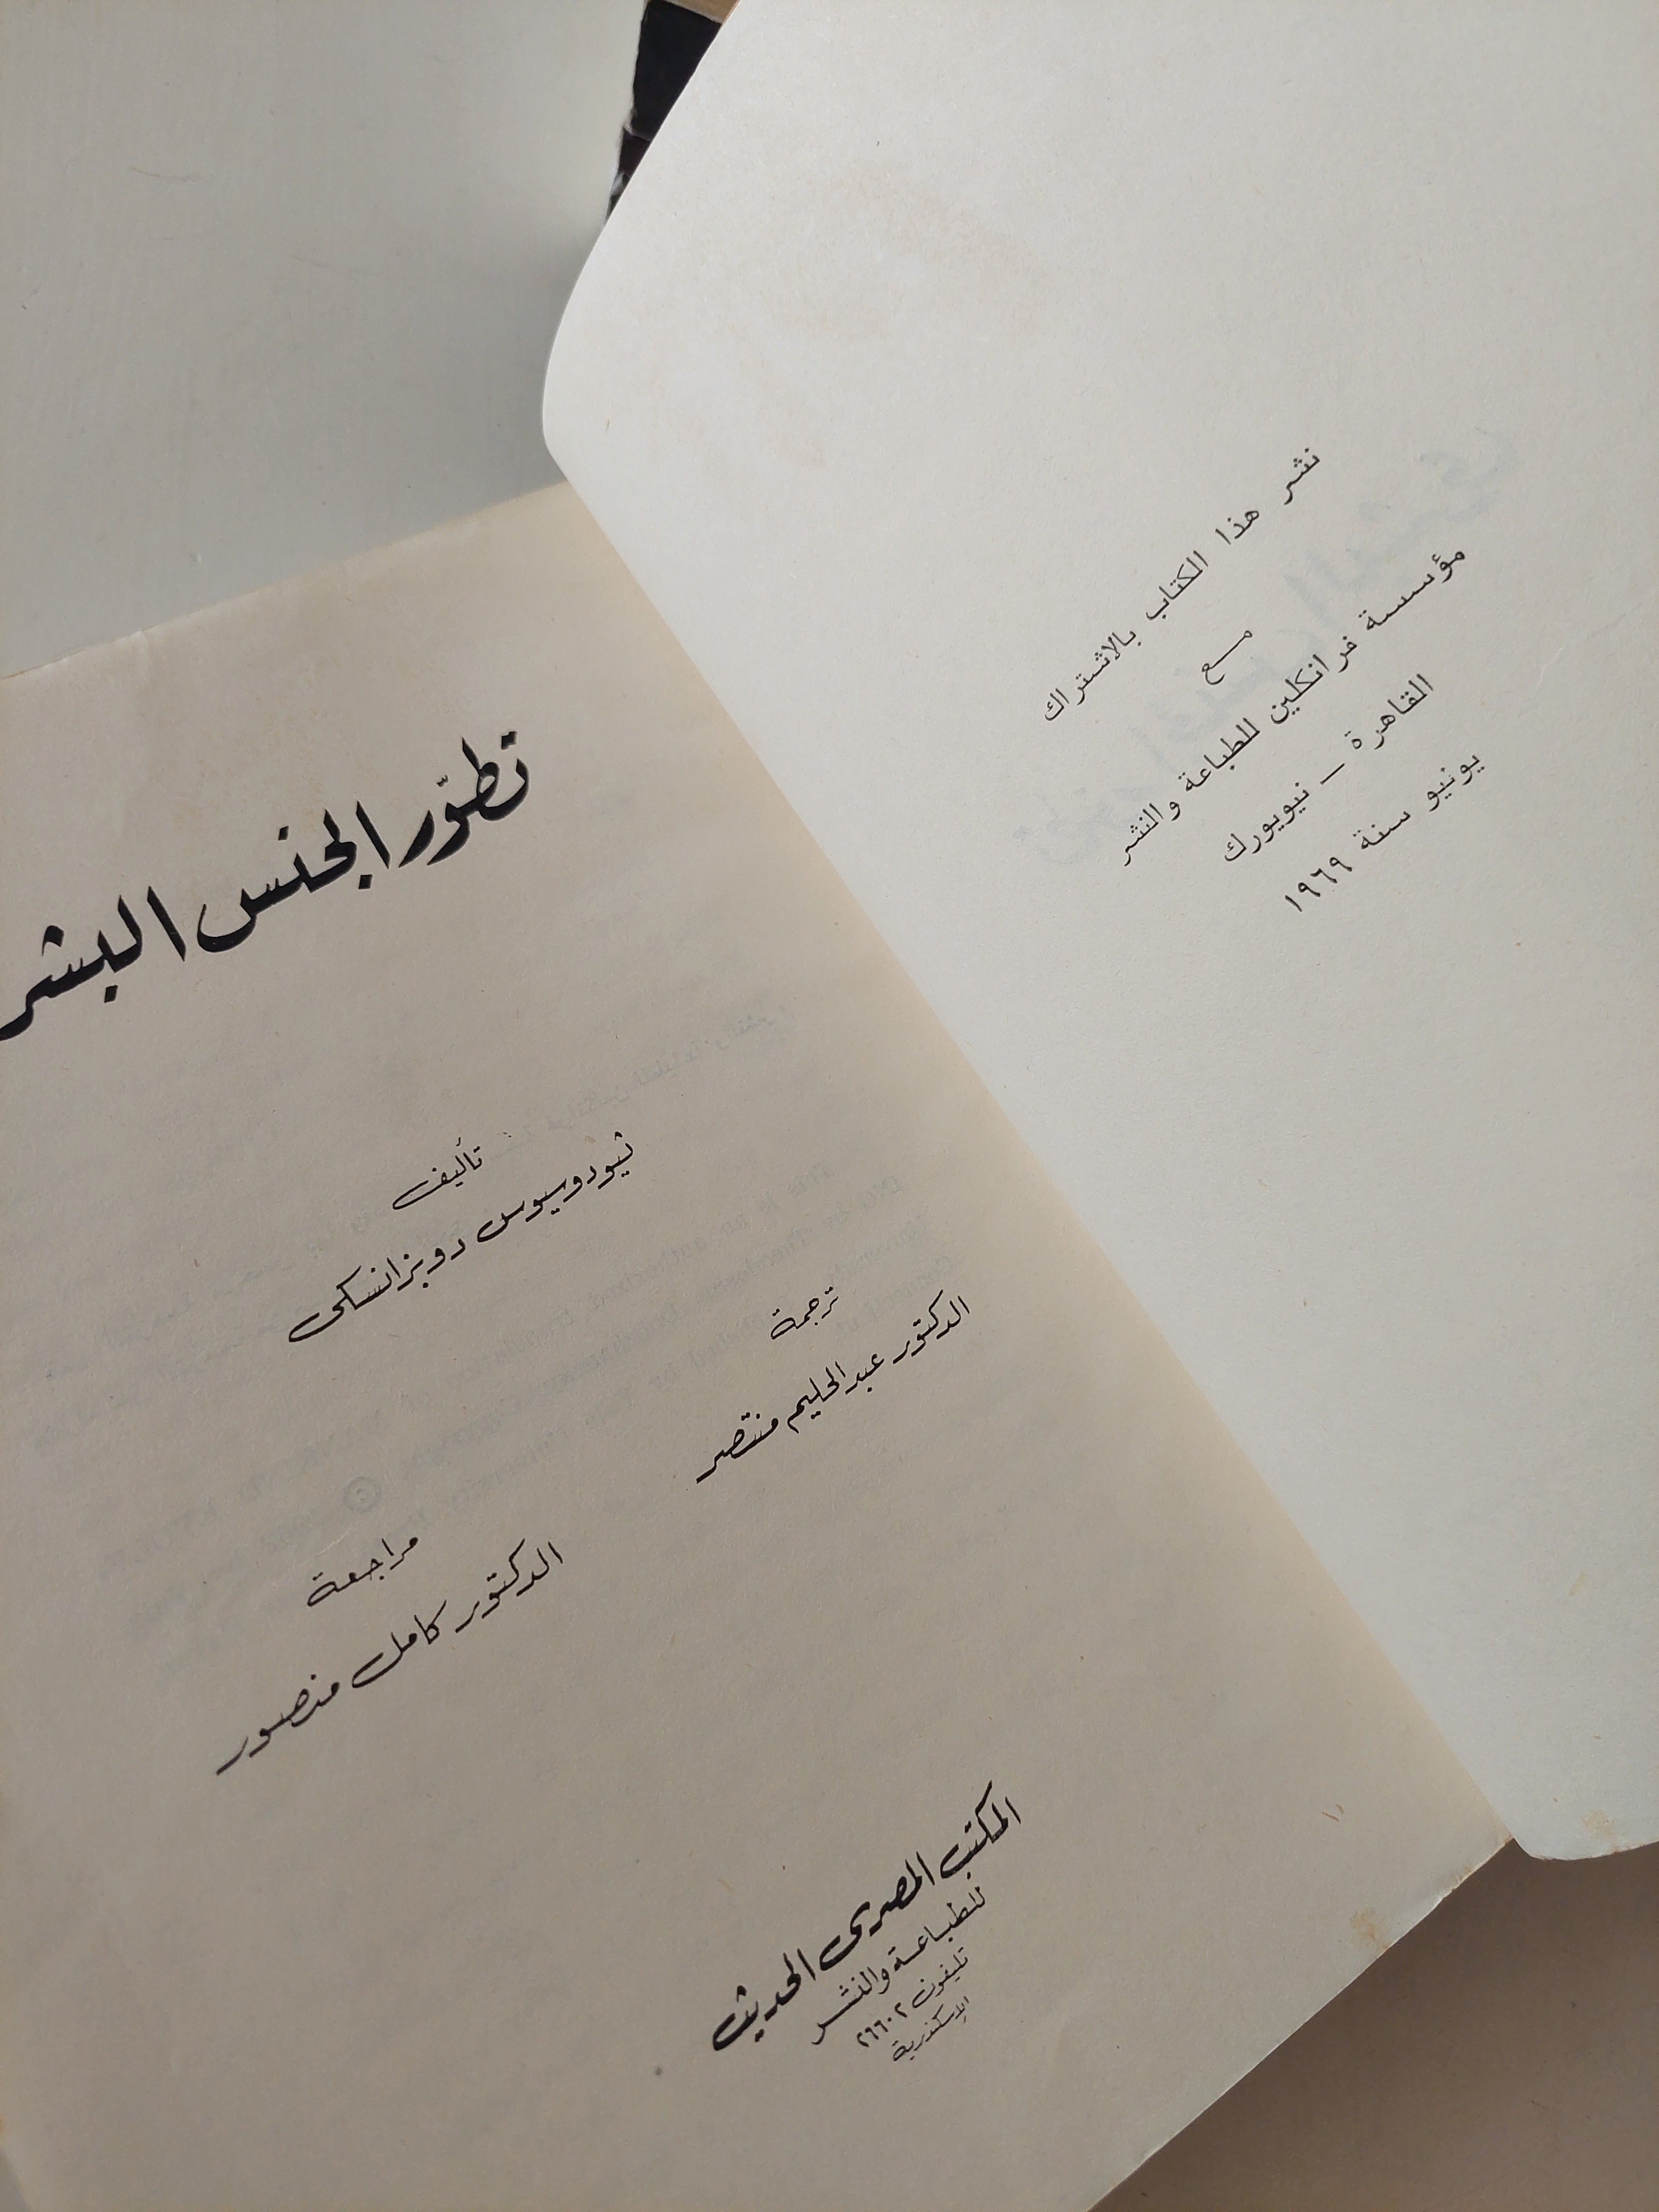 نشر هذا الكتاب بالاشتراك
مع
مؤسسة فرانكلين للطباعة والنشر
القاهرة – نيويورك
يونيو سنة ١٩٦٩
تطوّر الجنس البشر
تأليف
ثيودوسيوس دوبزانسكى
ترجمة
الدكتور عبد الحليم منتصر
مراجعة
الدكتور كامل منصور
المكتب المصرى الحديث
للطباعة والنشر
تليفون ٢٦٦٠٢
الإسكندرية